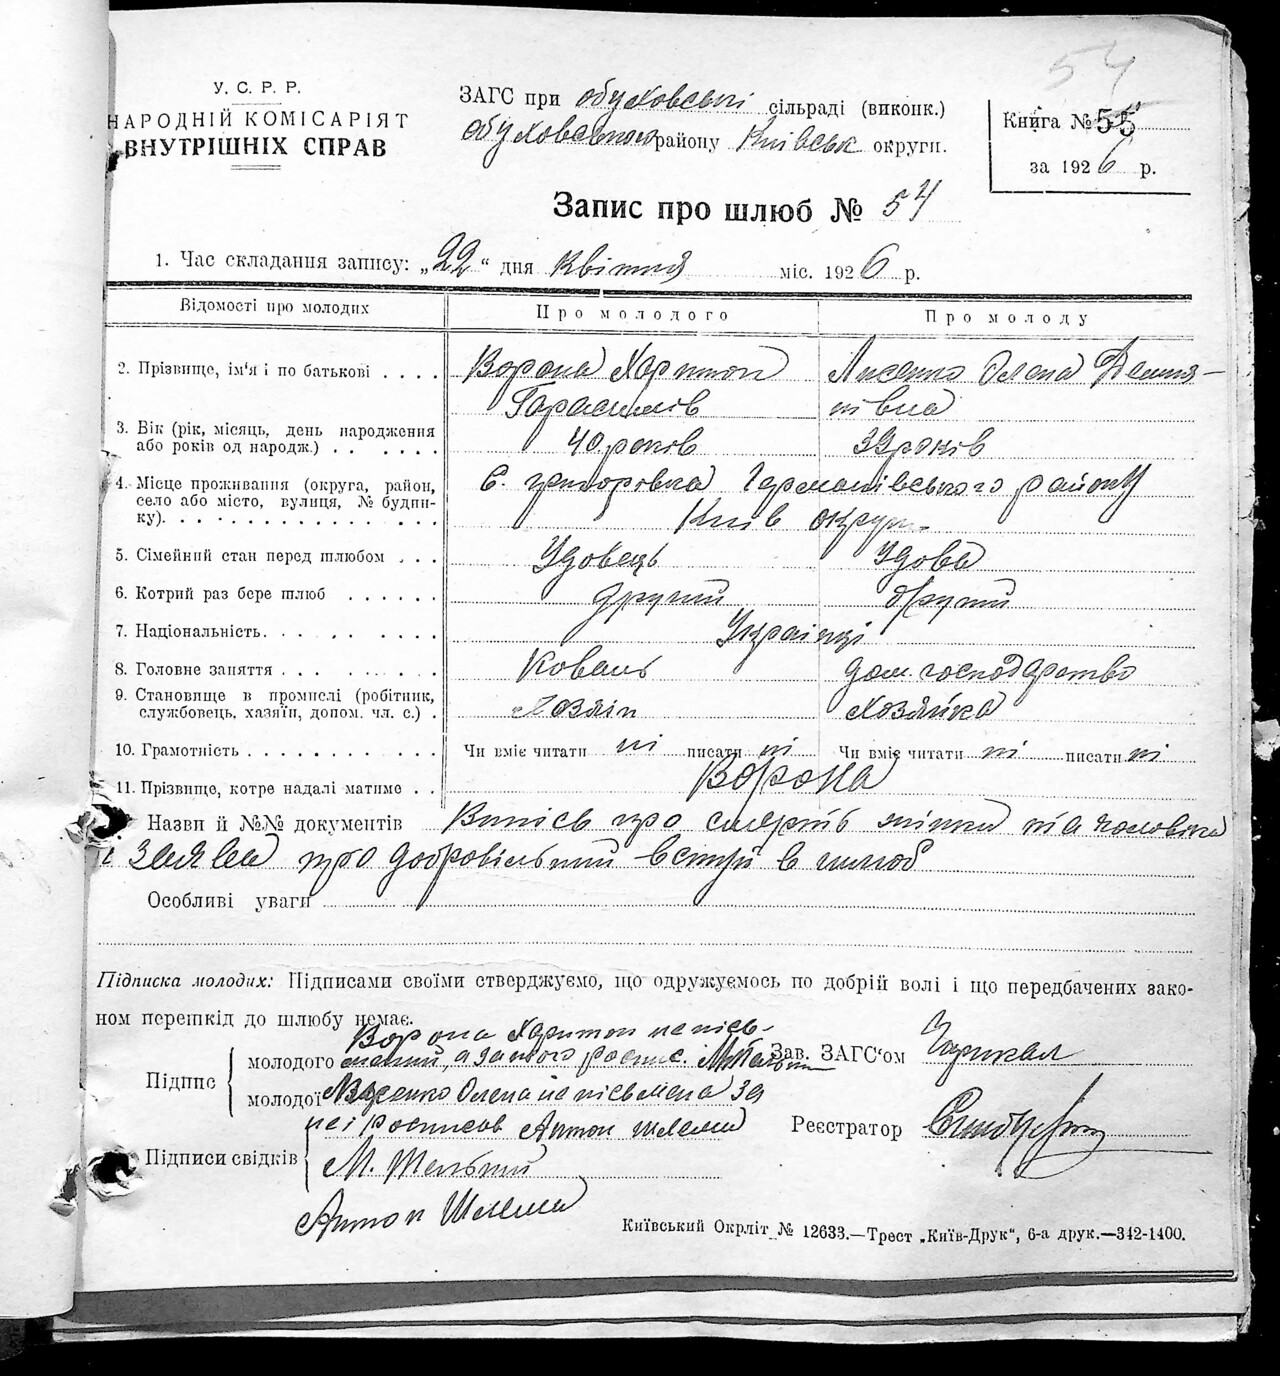 54
У. С. Р. Р.
НАРОДНІЙ КОМІСАРІЯТ
ВНУТРІШНІХ СПРАВ
ЗАГС при обуховські сільраді (виконк.)
обуховського району Київськ округи.
Книга № 55
за 1926 р.
Запис про шлюб № 54
1. Час складання запису: „22“ дня квітня міс. 1926 р.
Відомості про молодих Про молодого Про молоду
2. Прізвище, ім'я і по батькові . . . . Ворона Харитон Лисенко Олена Демя-
Гарасимів нівна
3. Вік (рік, місяць, день народження 40 років 39 років
або років од народж.) . . . . . .
4. Місце проживання (округа, район, С. григоровка Германівського району
село або місто, вулиця, № будин-
ку). . . . . . . . . . . . . . . Київ округи
5. Сімейний стан перед шлюбом . . . Удовець Удова
6. Котрий раз бере шлюб . . . . . . другий другий
7. Національність. . . . . . . . . Українці
8. Головне заняття . . . . . . . . . Коваль дом. господарство
9. Становище в промислі (робітник, Хозяін Хозяйка
службовець, хазяїн, допом. чл. с.) .
10. Грамотність . . . . . . . . . . Чи вміє читати ні писати ні Чи вміє читати ні писати ні
11. Прізвище, котре надалі матиме . . Ворона
Назви й №№ документів Випісь про смерть жінки та чоловіка
і заява про добровільний вступ в шлюб
Особливі уваги
Підписка молодих: Підписами своїми стверджуємо, що одружуємось по добрій волі і що передбачених зако-
ном перешкід до шлюбу немає.
Ворона Харитон непісь-
Підпис молодого менний, а за нього роспис.
Зав. ЗАГС'ом
молодої Лисенко Олена не пісьмена за
неі росписов Антон
Реєстратор
Підписи свідків М.
Антон
Київський Окрліт № 12633.—Трест „Київ-Друк“, 6-а друк.—342-1400.